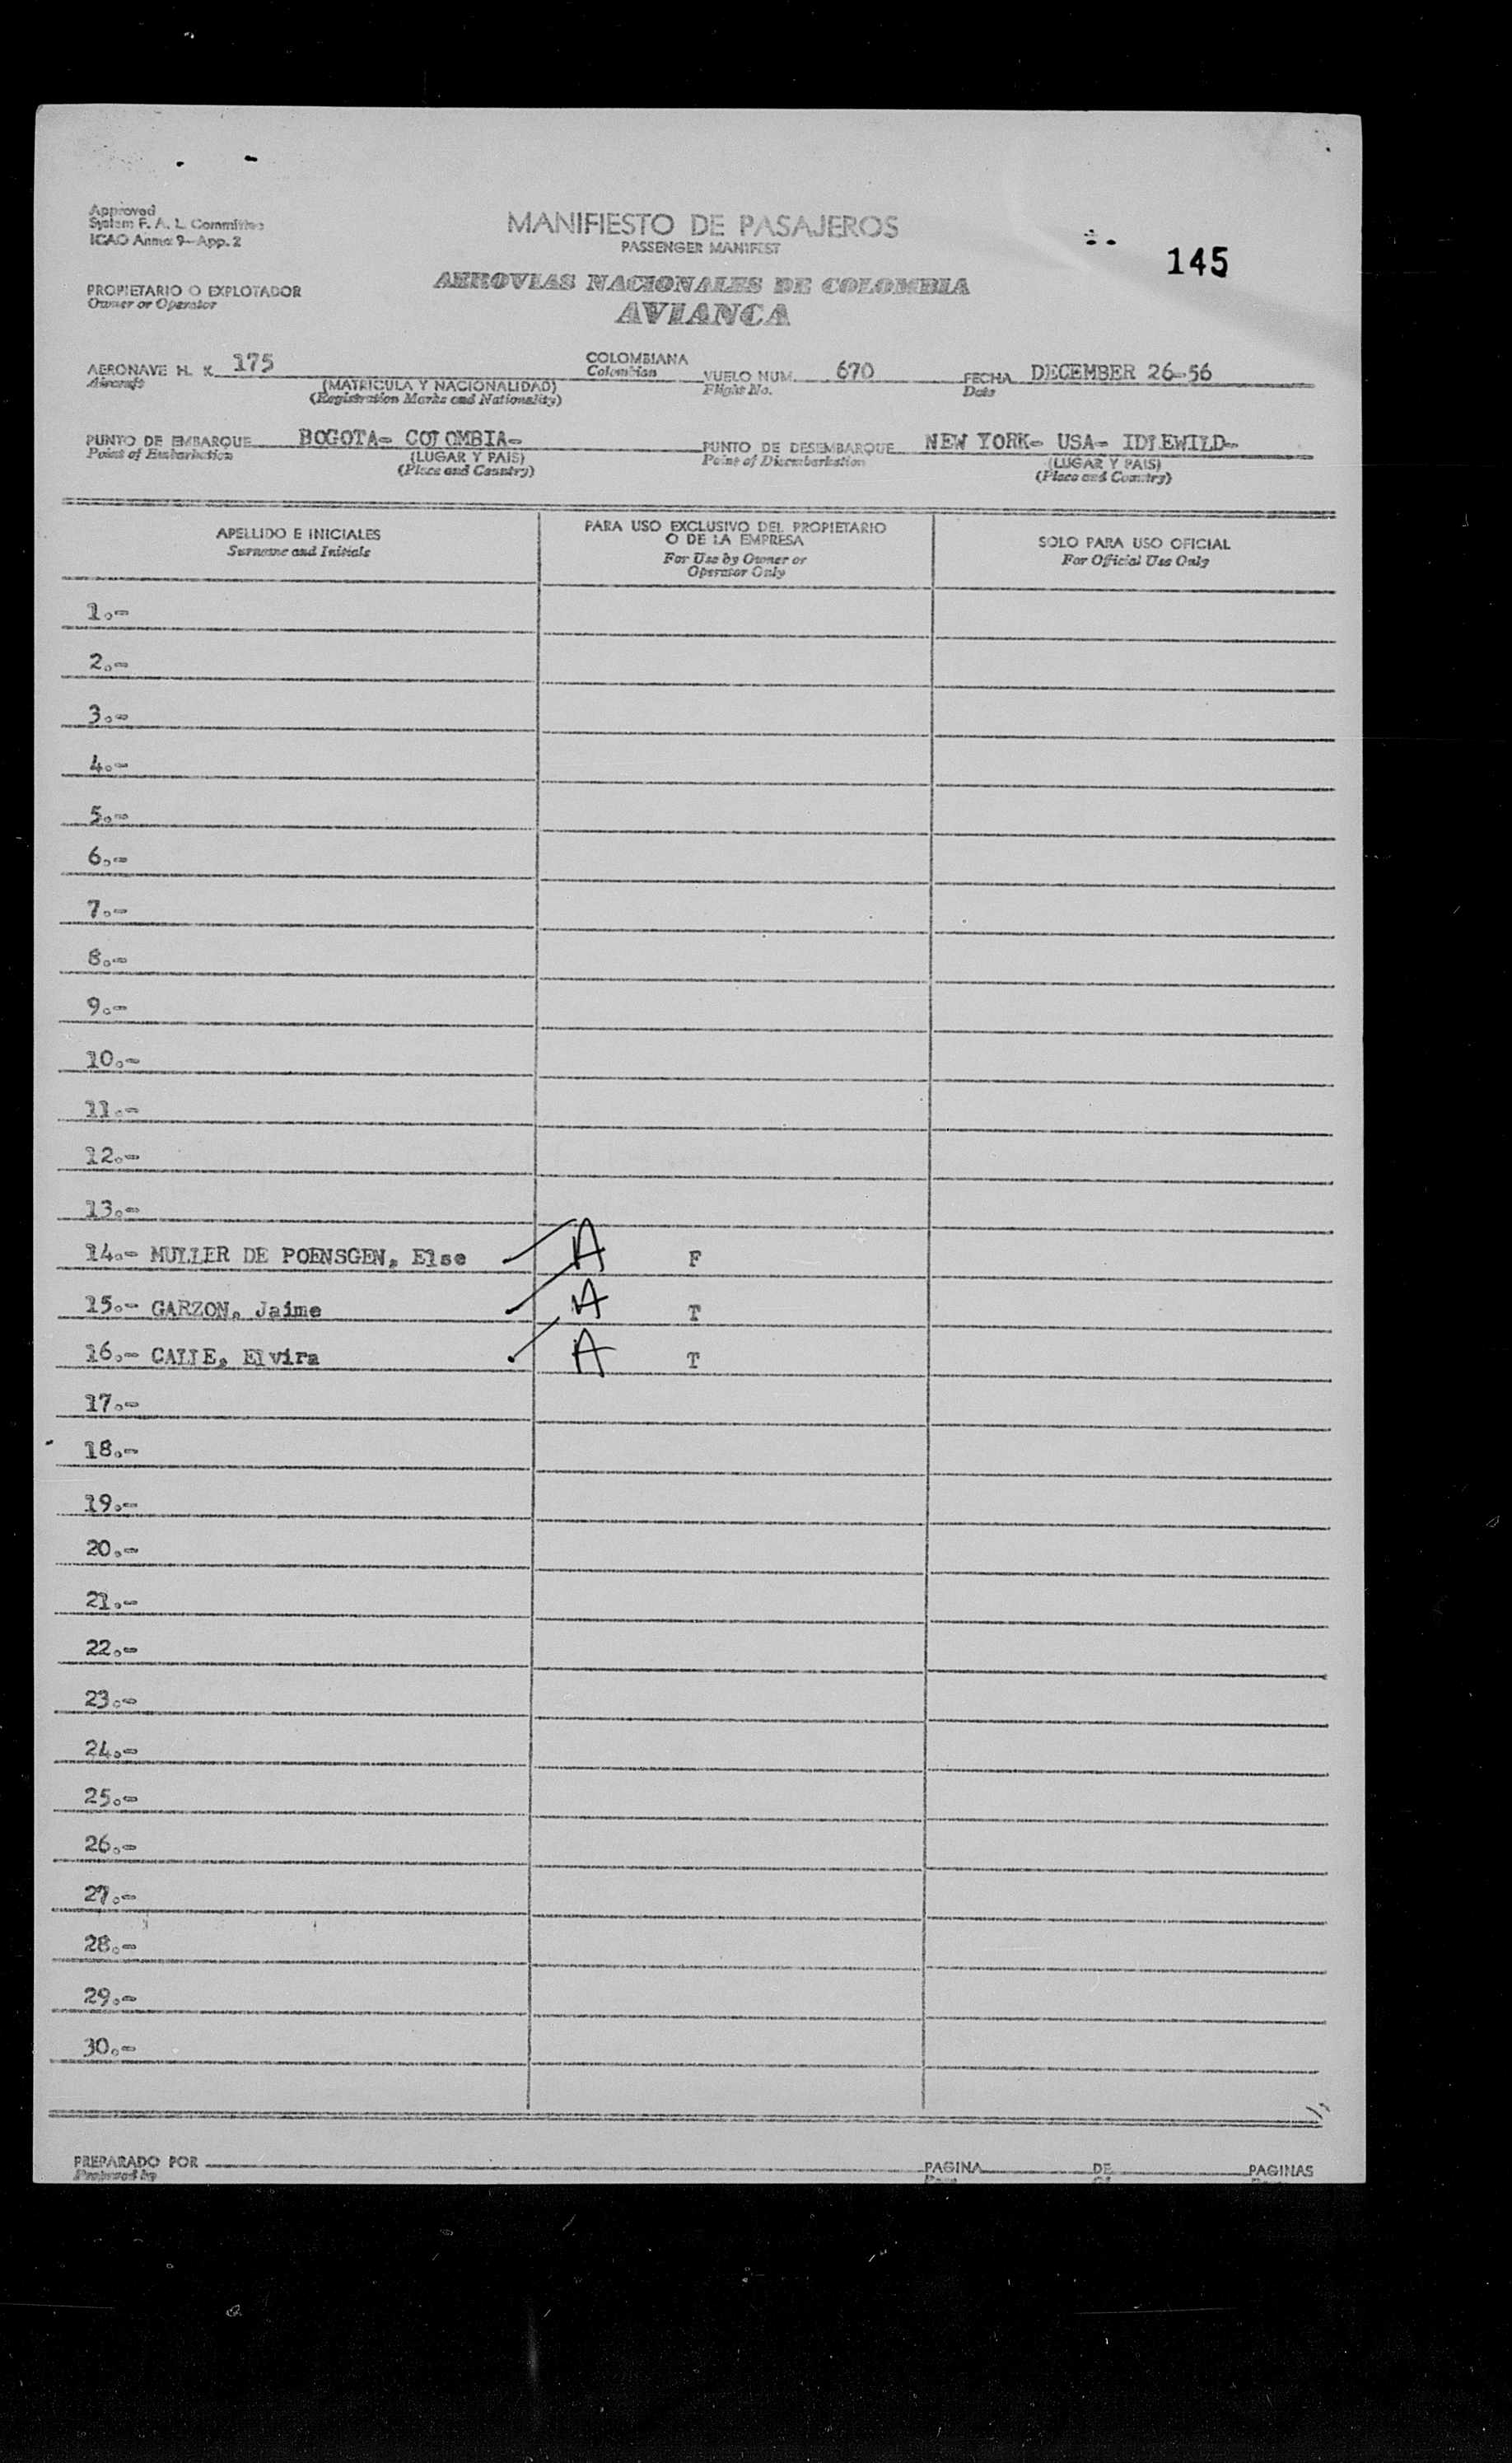 Approved
System F. A. L. Committee
ICAO Annex 9—App. 2
MANIFIESTO DE PASAJEROS
PASSENGER MANIFEST
145
PROPIETARIO O EXPLOTADOR
Owner or Operator
AEROVIAS NACIONALES DE COLOMBIA
AVIANCA
AERONAVE H. K. 175 COLOMBIANA VUELO NUM. 670 FECHA DECEMBER 26-56
Aircraft (MATRICULA Y NACIONALIDAD) Colombian Flight No. Date
(Registration Marks and Nationality)
PUNTO DE EMBARQUE BOGOTA- COLOMBIA- PUNTO DE DESEMBARQUE NEW YORK- USA- IDLEWILD-
Point of Embarkation (LUGAR Y PAIS) Point of Disembarkation (LUGAR Y PAIS)
(Place and Country) (Place and Country)
APELLIDO E INICIALES
Surname and Initials
PARA USO EXCLUSIVO DEL PROPIETARIO
O DE LA EMPRESA
For Use by Owner or
Operator Only
SOLO PARA USO OFICIAL
For Official Use Only
1.-
2.-
3.-
4.-
5.-
6.-
7.-
8.-
9.-
10.-
11.-
12.-
13.-
14.- MULLER DE POENSGEN, Else A F
15.- GARZON, Jaime A T
16.- CALLE, Elvira A T
17.-
18.-
19.-
20.-
21.-
22.-
23.-
24.-
25.-
26.-
27.-
28.-
29.-
30.-
PREPARADO POR PAGINA DE PAGINAS
Prepared by